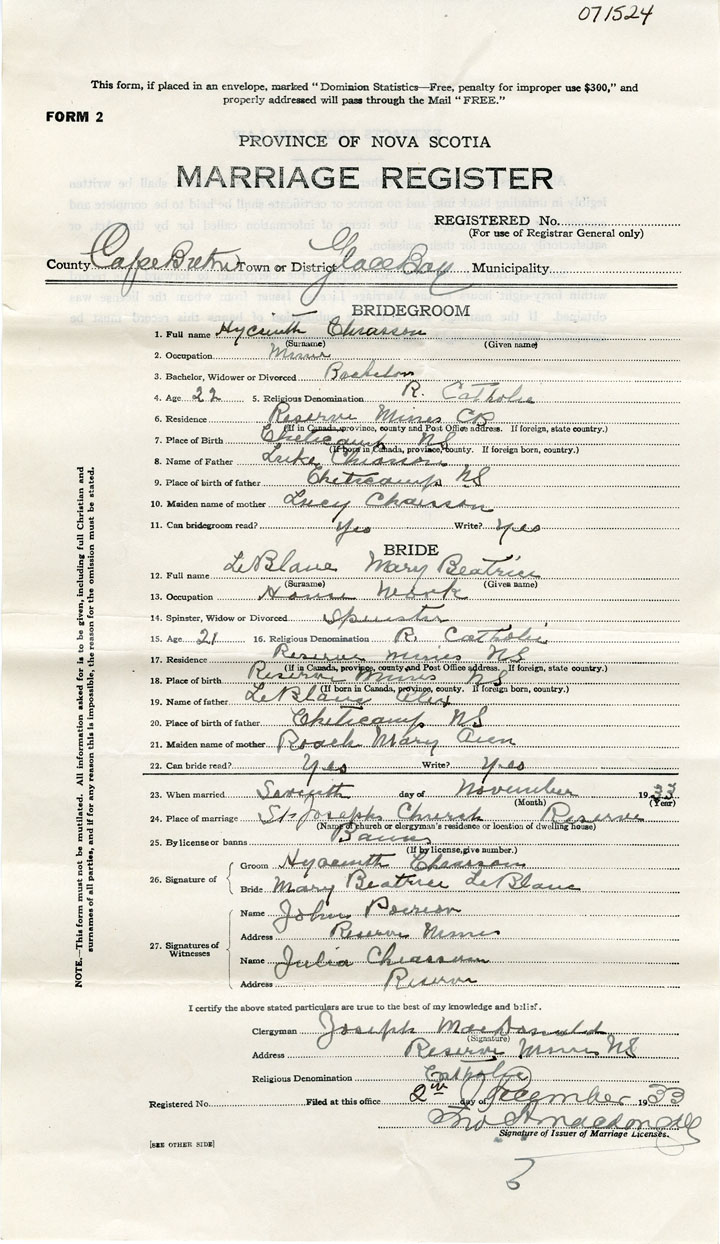 071524
This form, if placed in an envelope, marked "Dominion Statistics—Free, penalty for improper use $300," and
properly addressed will pass through the Mail "FREE."
FORM 2
PROVINCE OF NOVA SCOTIA
MARRIAGE REGISTER
REGISTERED No.
(For use of Registrar General only)
County Cape Breton Town or District Glace Bay Municipality
BRIDEGROOM
1. Full name Hycinth Chiasson
(Surname) (Given name)
2. Occupation Miner
3. Bachelor, Widower or Divorced Bachelor
4. Age 22 5. Religious Denomination R. Catholic
6. Residence Reserve Mines CB
(If in Canada, province, county and Post Office address. If foreign, state country.)
7. Place of Birth Cheticamp NS
(If born in Canada, province, county. If foreign born, country.)
8. Name of Father Luke Chiasson
9. Place of birth of father Cheticamp NS
10. Maiden name of mother Lucy Chaisson
11. Can bridegroom read? Yes Write? Yes
BRIDE
12. Full name LeBlanc Mary Beatrice
(Surname) (Given name)
13. Occupation House Work
14. Spinster, Widow or Divorced Spinster
15. Age 21 16. Religious Denomination R. Catholic
17. Residence Reserve Mines NS
(If in Canada, province, county and Post Office address. If foreign, state country.)
18. Place of birth Reserve Mines NS
(If born in Canada, province, county. If foreign born, country.)
19. Name of father LeBlanc Alex
20. Place of birth of father Cheticamp NS
21. Maiden name of mother Roach Mary Ann
22. Can bride read? Yes Write? Yes
23. When married Seventh day of November 1933
(Month) (Year)
24. Place of marriage St Josephs Church Reserve
(Name of church or clergyman's residence or location of dwelling house)
25. By license or banns Banns
(If by license, give number.)
26. Signature of Groom Hyacinth Chiasson
Bride Mary Beatrice LeBlanc
27. Signatures of Witnesses
Name John Poirier
Address Reserve Mines
Name Julia Chiasson
Address Reserve
I certify the above stated particulars are true to the best of my knowledge and belief.
Clergyman Joseph MacDonald
(Signature)
Address Reserve Mines NS
Religious Denomination Catholic
Registered No. Filed at this office 2nd day of December 1933
Signature of Issuer of Marriage Licenses.
[SEE OTHER SIDE]
NOTE.—This form must not be mutilated. All information asked for is to be given, including full Christian and
surnames of all parties, and if for any reason this is impossible, the reason for the omission must be stated.